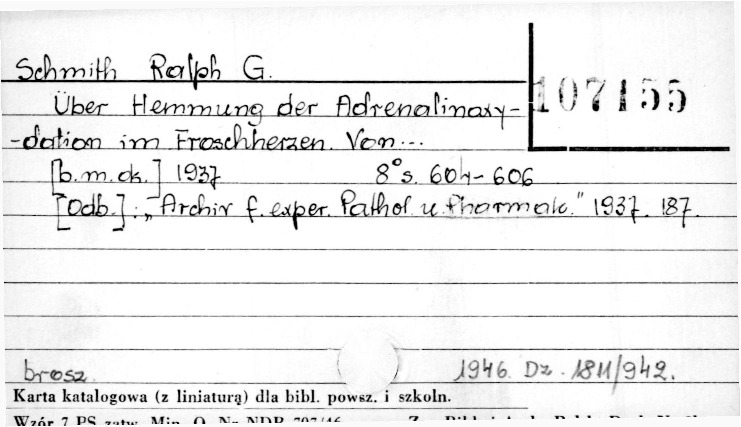 Schmith Ralph G.
107155
Über Hemmung der Adrenalinaxy-
-dation im Froschherzen. Von...
[b.m.ok.] 1937 8° s. 604-606
[Odb.]: „Archiv f. exper. Pathol. u. Pharmak." 1937. 187.
brosz. 1946. Dz. 1811/942.
Karta katalogowa (z liniaturą) dla bibl. powsz. i szkoln.
Wzór 7 PS zatw. Min. O. Nr NDP